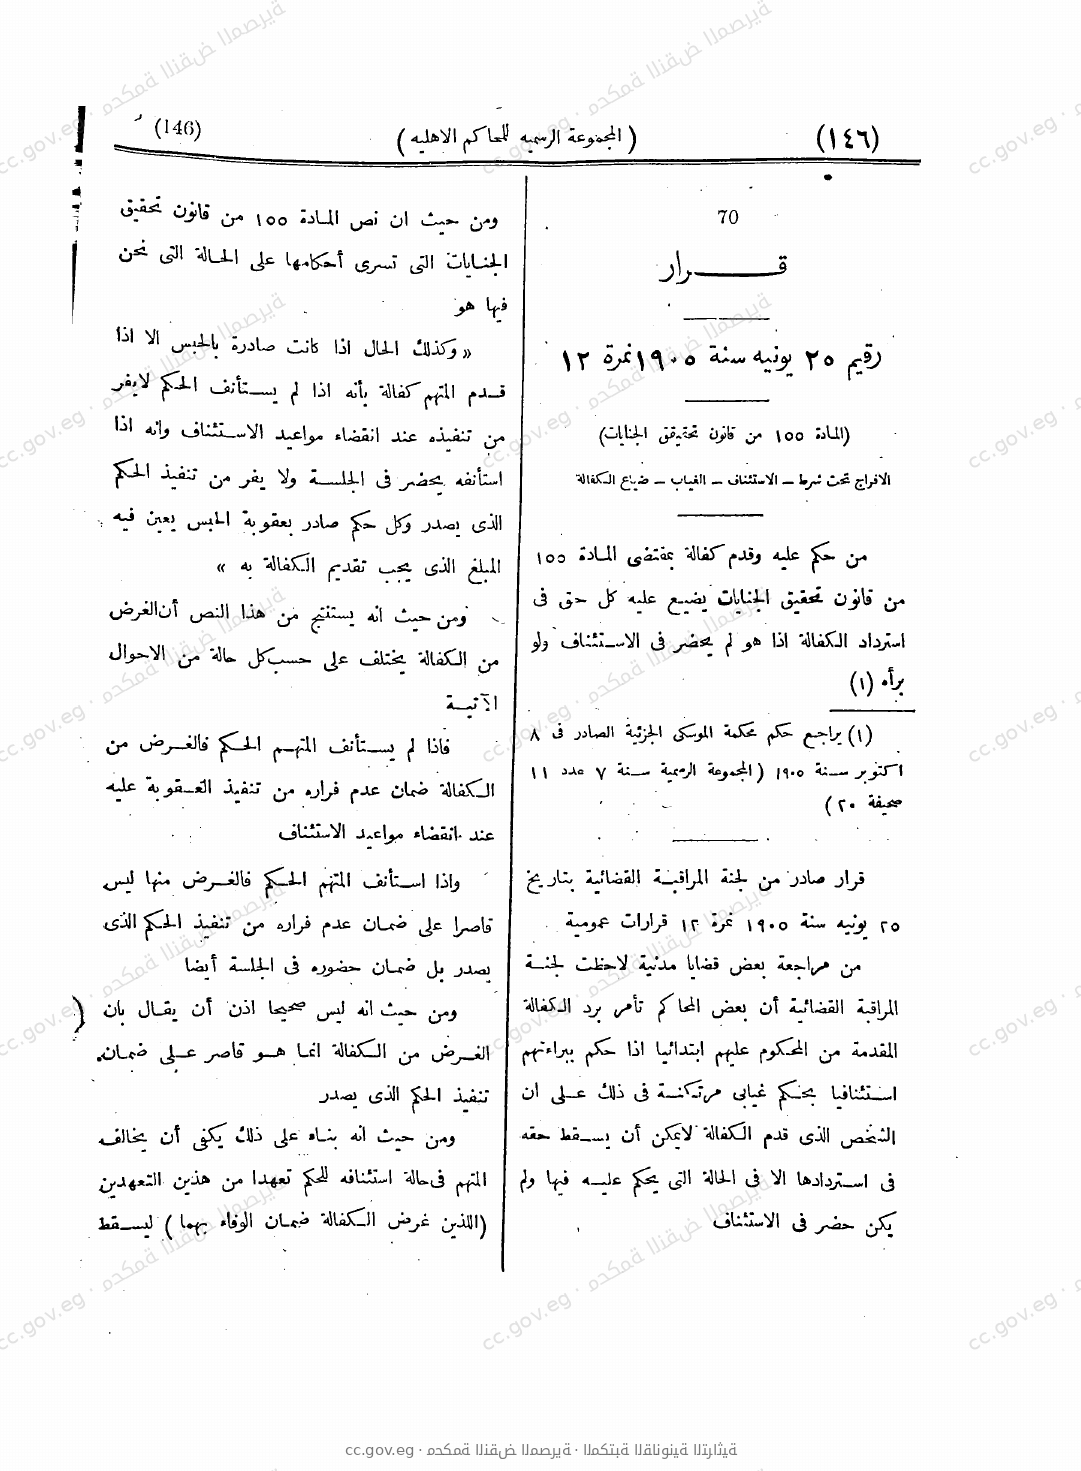 (١٤٦)
( المجموعة الرسميه للمحاكم الاهليه )
(146)
70
قــــرار
رقيم ٢٥ يونيه سنة ١٩٠٥ نمرة ١٢
(المادة ١٥٥ من قانون تحقيقق الجنايات)
الافراج تحت شرط ــ الاستئناف ــ الغياب ــ ضياع الكفالة
من حكم عليه وقدم كفالة بمقتضى المادة ١٥٥
من قانون تحقيق الجنايات يضيع عليه كل حق فى
استرداد الكفالة اذا هو لم يحضر فى الاستئناف ولو
برأه (١)
(١) يراجع حكم محكمة الموسكى الجزئية الصادر فى ٨
اكتوبر سنة ١٩٠٥ (المجموعة الرسمية سنة ٧ عدد ١١
صحيفة ٢٠)
قرار صادر من لجنة المراقبة القضائية بتاريخ
٢٥ يونيه سنة ١٩٠٥ نمرة ١٢ قرارات عمومية
من مراجعة بعض قضايا مدنية لاحظت لجنة
المراقبة القضائية أن بعض المحاكم تأمر برد الكفالة
المقدمة من المحكوم عليهم ابتدائيا اذا حكم ببراءتهم
استئنافيا بحكم غيابى مرتكنة فى ذلك على ان
الشخص الذى قدم الكفالة لايمكن أن يسقط حقه
فى استردادها الا فى الحالة التى يحكم عليه فيها ولم
يكن حضر فى الاستئناف
ومن حيث ان نص المادة ١٥٥ من قانون تحقيق
الجنايات التى تسرى أحكامها على الحالة التى نحن
فيها هو
« وكذلك الحال اذا كانت صادرة بالحبس الا اذا
قدم المتهم كفالة بأنه اذا لم يستأنف الحكم لايفر
من تنفيذه عند انقضاء مواعيد الاستئناف وانه اذا
استأنفه يحضر فى الجلسة ولا يفر من تنفيذ الحكم
الذى يصدر وكل حكم صادر بعقوبة الحبس يعين فيه
المبلغ الذى يجب تقديم الكفالة به »
ومن حيث انه يستنتج من هذا النص أن الغرض
من الكفالة يختلف على حسب كل حالة من الاحوال
الآتية
فاذا لم يستأنف المتهم الحكم فالغرض من
الكفالة ضمان عدم فراره من تنفيذ العقوبة عليه
عند انقضاء مواعيد الاستئناف
واذا استأنف المتهم الحكم فالغرض منها ليس
قاصرا على ضمان عدم فراره من تنفيذ الحكم الذى
يصدر بل ضمان حضوره فى الجلسة أيضا
ومن حيث انه ليس صحيحا اذن أن يقال بان
الغرض من الكفالة انما هو قاصر على ضمان
تنفيذ الحكم الذى يصدر
ومن حيث انه بناء على ذلك يكفى أن يخالف
المتهم فى حالة استئنافه للحكم تعهدا من هذين التعهدين
(اللذين غرض الكفالة ضمان الوفاء بهما) ليسقط
cc.gov.eg · محكمة النقض المصرية · المكتبة القانونية التراثية